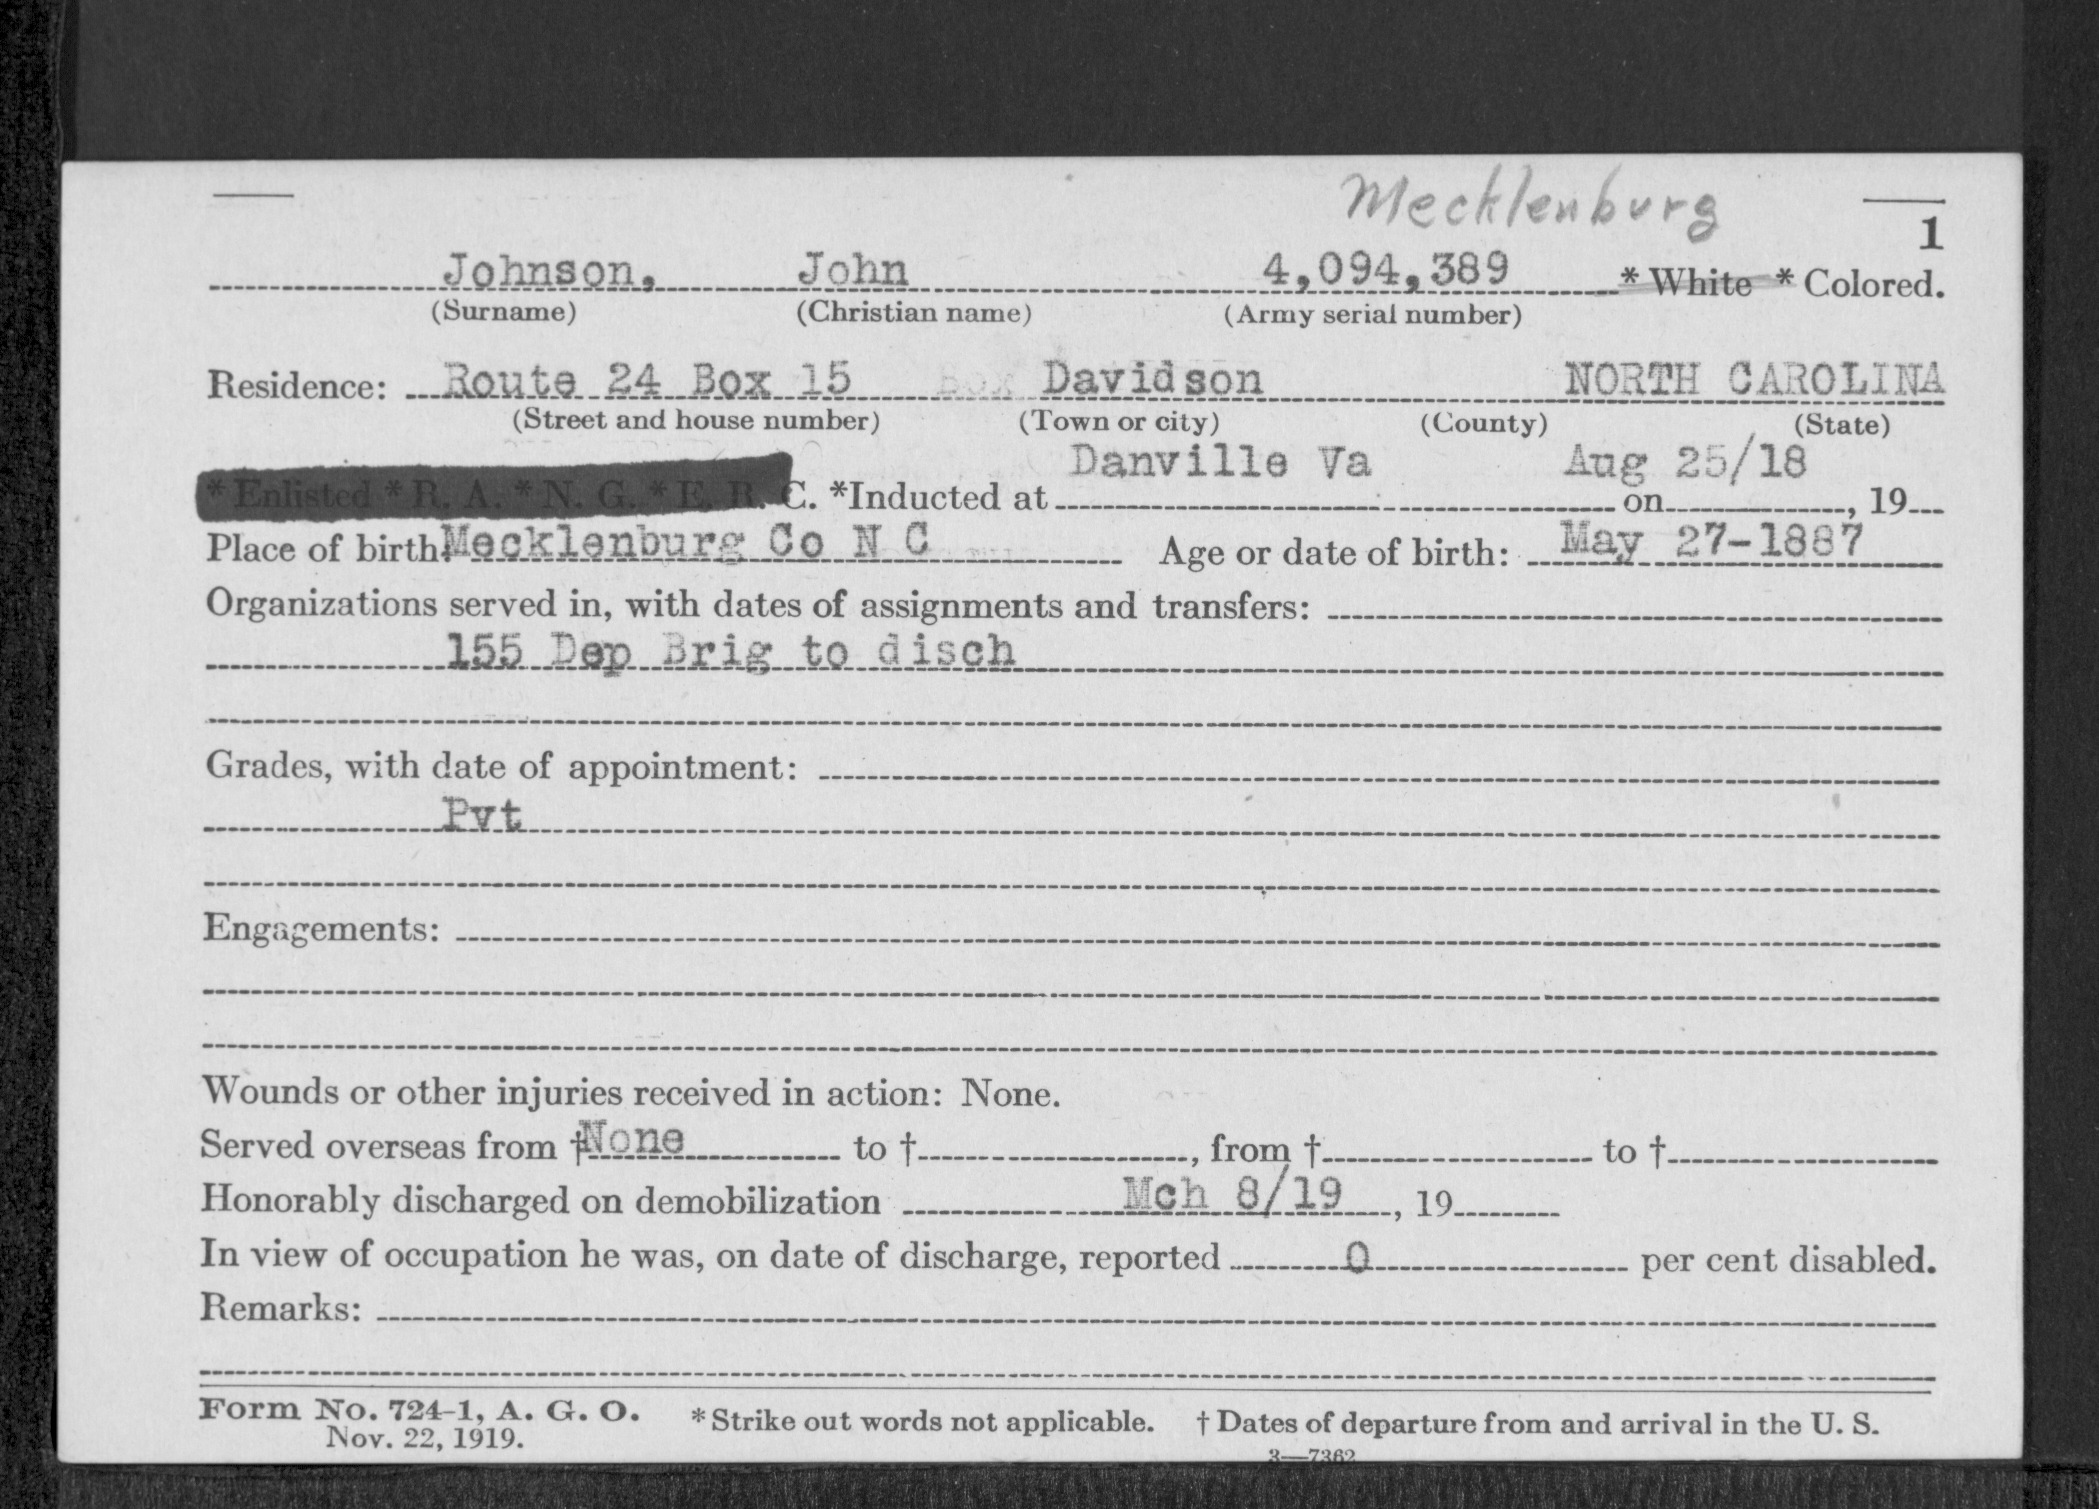 Mecklenburg
1
Johnson, John 4,094,389 * White * Colored.
(Surname) (Christian name) (Army serial number)
Residence: Route 24 Box 15 Box Davidson NORTH CAROLINA
(Street and house number) (Town or city) (County) (State)
Danville Va Aug 25/18
* Enlisted * R. A. * N. G. * E. R. C. *Inducted at on , 19
Place of birth: Mecklenburg Co N C Age or date of birth: May 27-1887
Organizations served in, with dates of assignments and transfers:
155 Dep Brig to disch
Grades, with date of appointment:
Pvt
Engagements:
Wounds or other injuries received in action: None.
Served overseas from † None to † , from † to †
Honorably discharged on demobilization Mch 8/19 , 19
In view of occupation he was, on date of discharge, reported 0 per cent disabled.
Remarks:
Form No. 724-1, A. G. O. * Strike out words not applicable. † Dates of departure from and arrival in the U. S.
Nov. 22, 1919.
3—7362